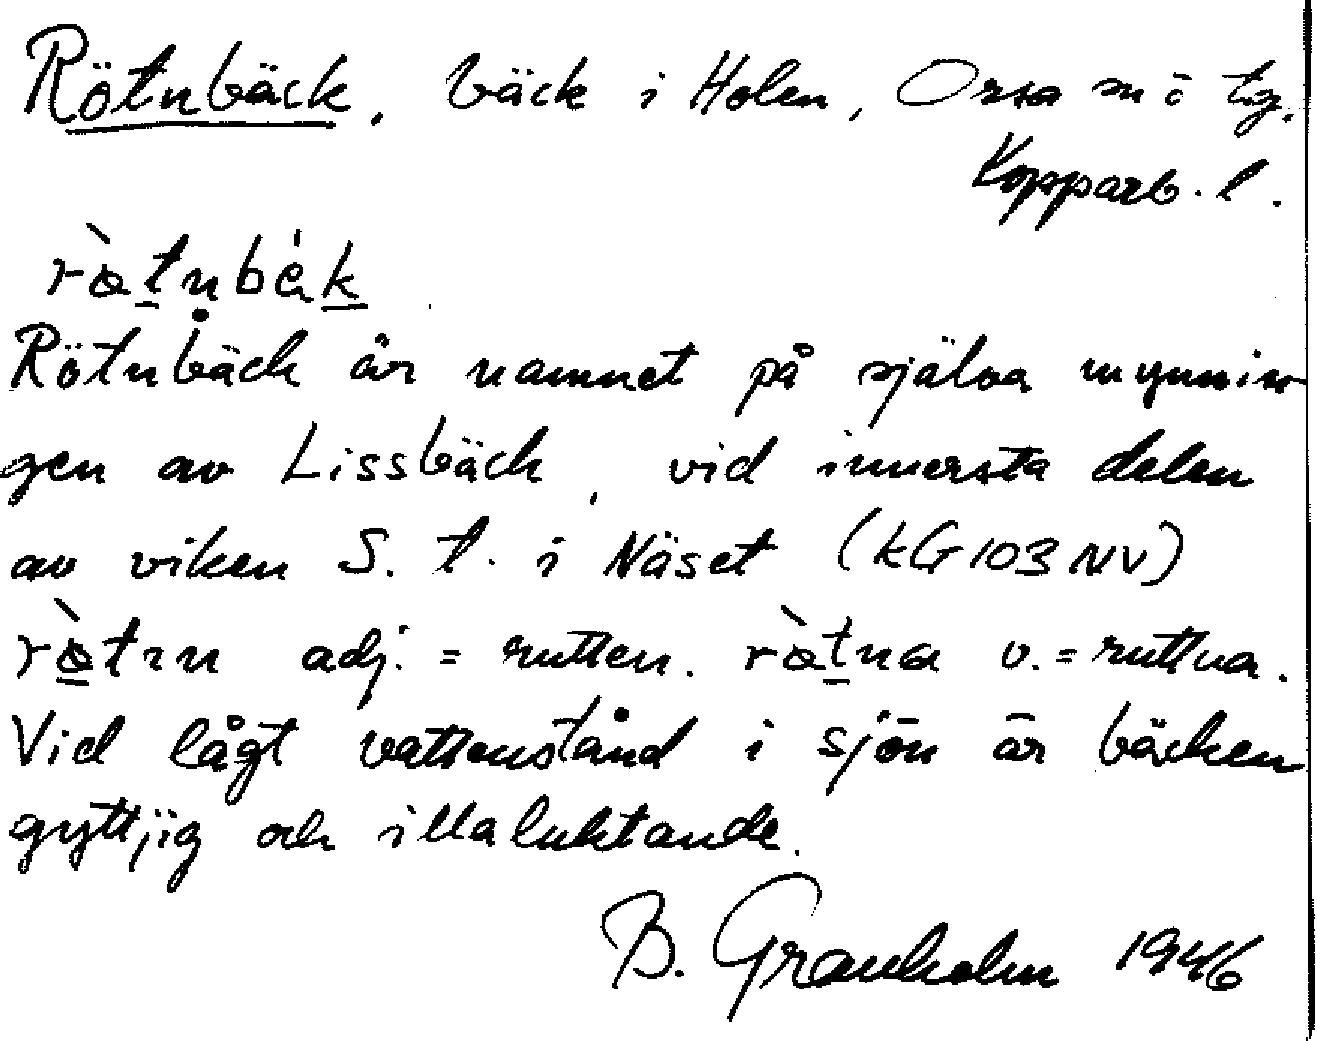 Rötnbäck, bäck i Holen, Orsa m o tg.
Kopparb. l.
rötnbäk
Rötnbäck är namnet på själva mynnin-
gen av Lissbäck, vid innersta delen
av viken S. t. i Näset (KG 103 NV)
rötın adj. = rutten. rötna v. = ruttna.
Vid lågt vattenstånd i sjön är bäcken
gyttjig och illaluktande.
B. Granholm 1946